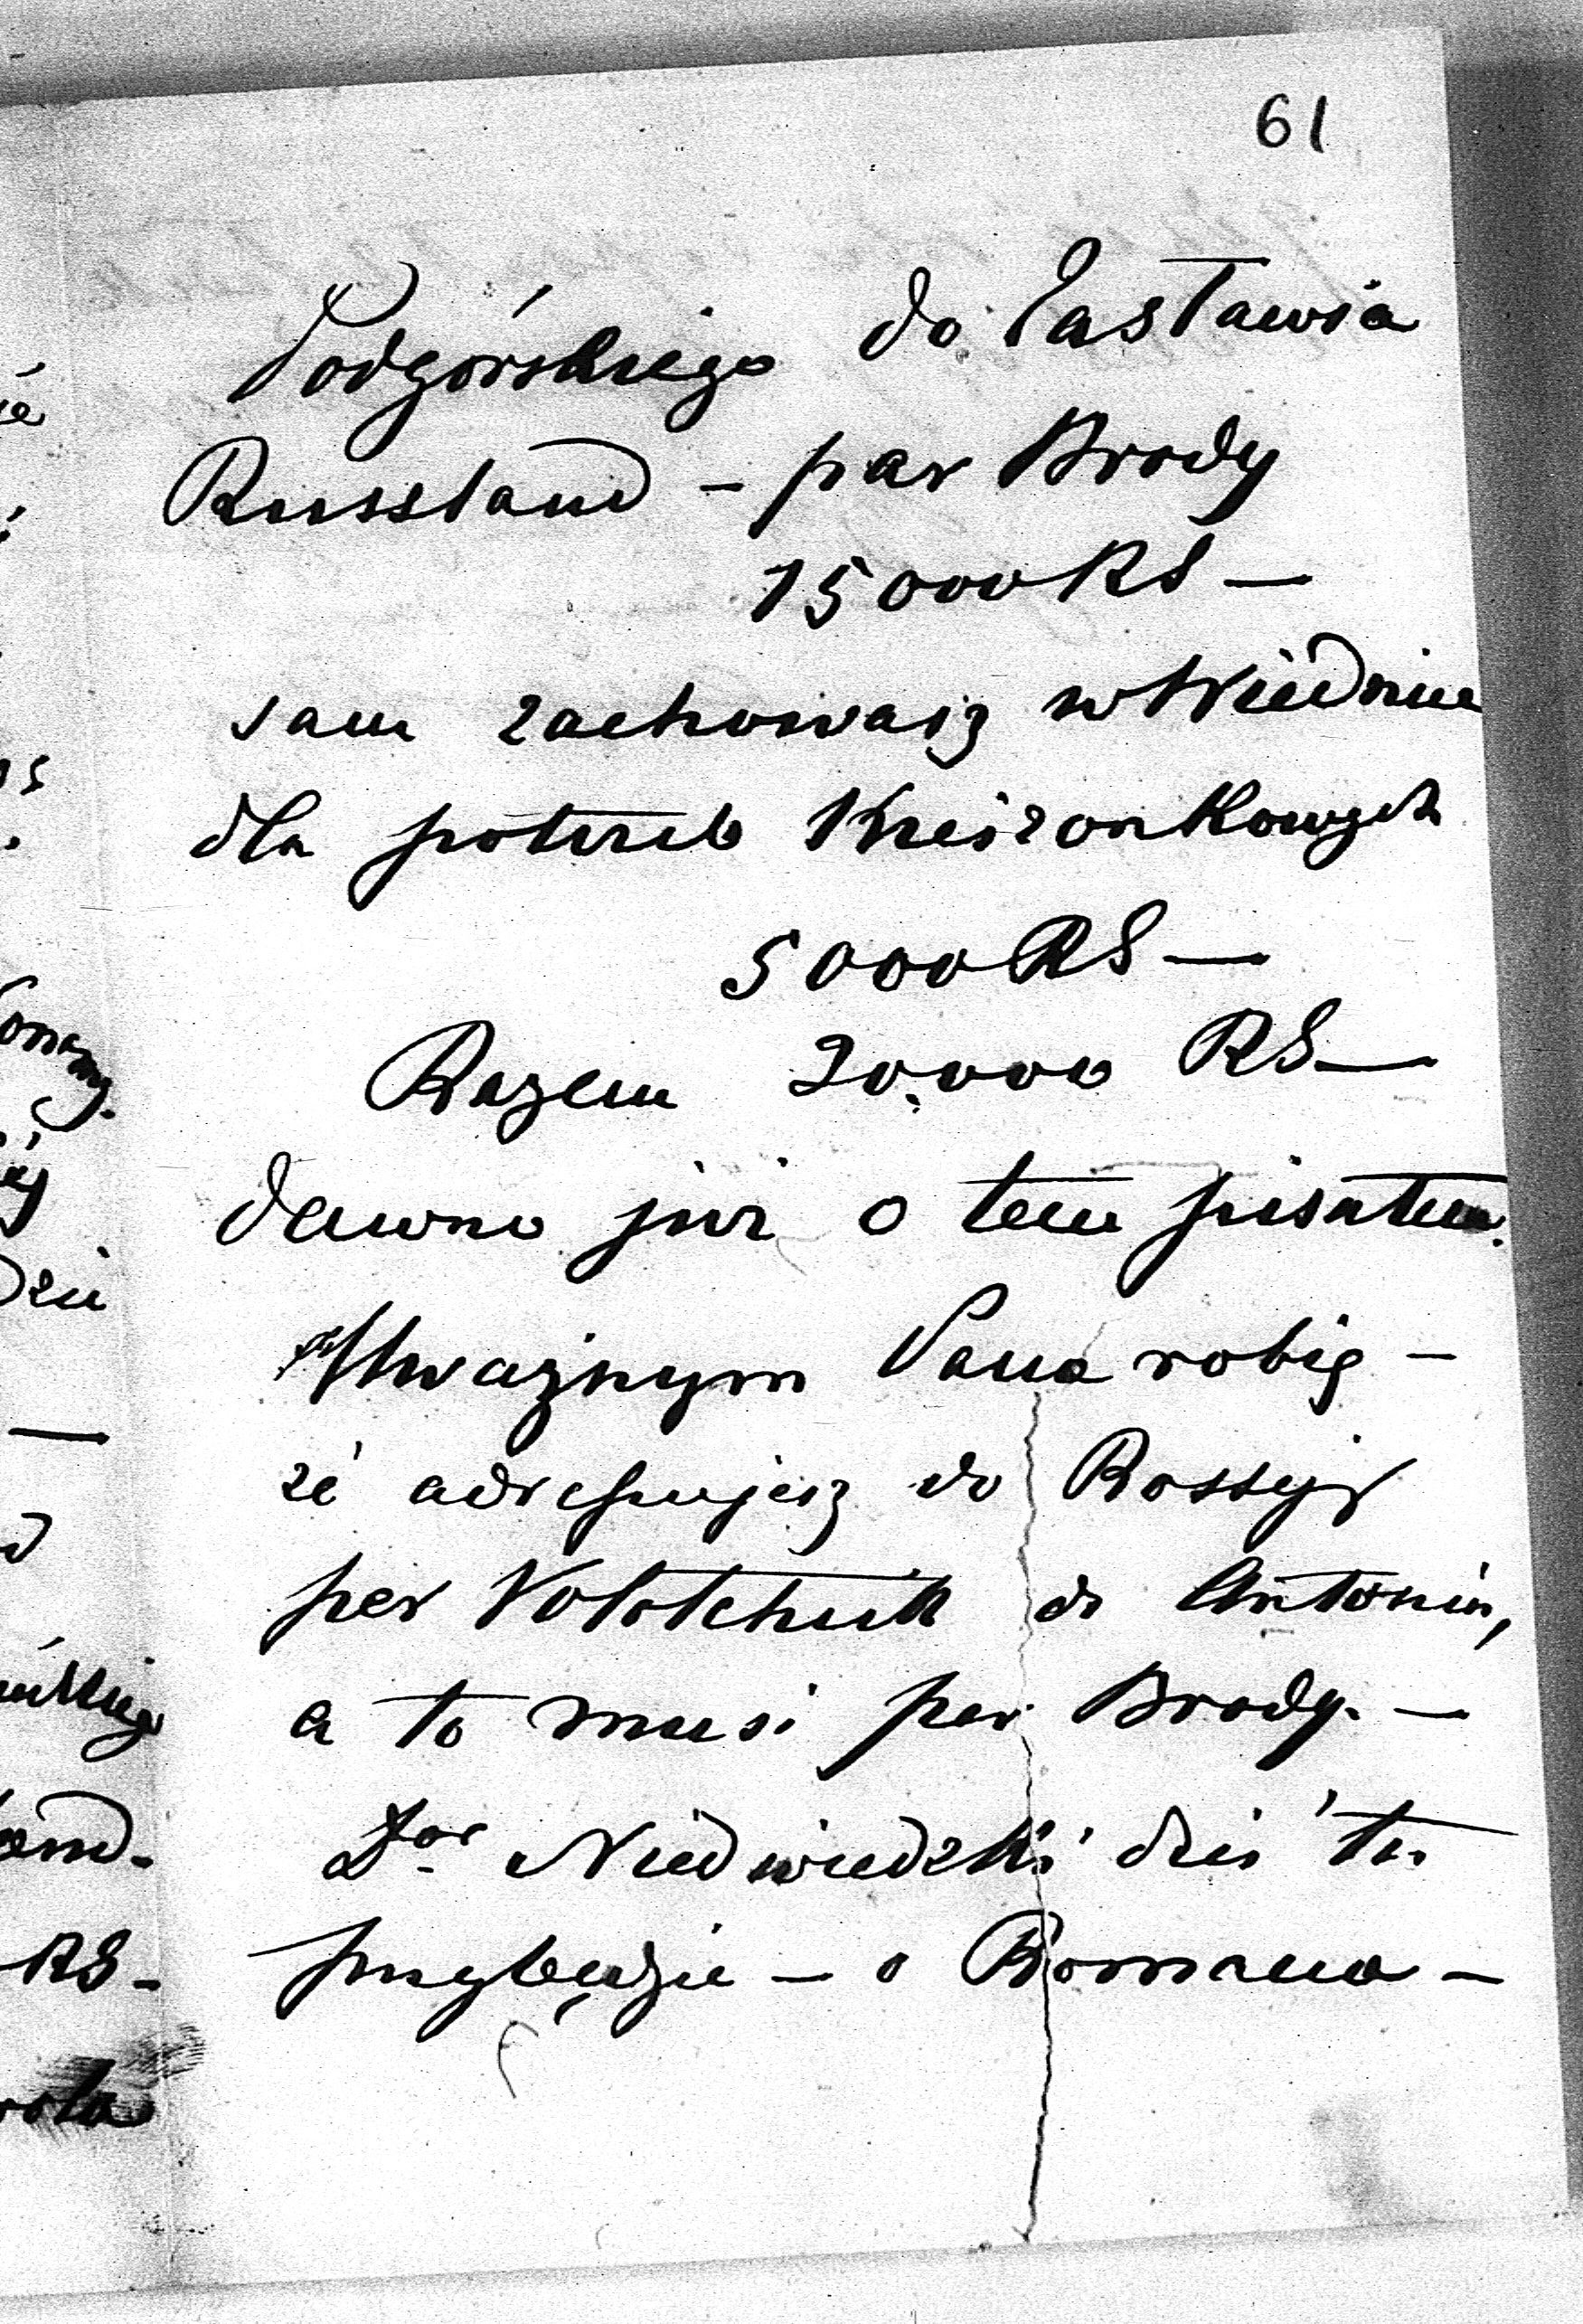 61
Podgórskiego do Zasławia
Russland – par Brody
15000 RS –
sam zachowasz w Wiedniu
dla potrzeb Kieszonkowych
5000 RS –
Razem 20,000 RS –
dawno już o tem pisałem.
Uważnym Pana robię –
że adresujesz do Rossyi
per Volotchisk do Antonin,
a to musi per Brody. –
Dor Niedwiedzki dziś tu
przybędzie – o Romana –